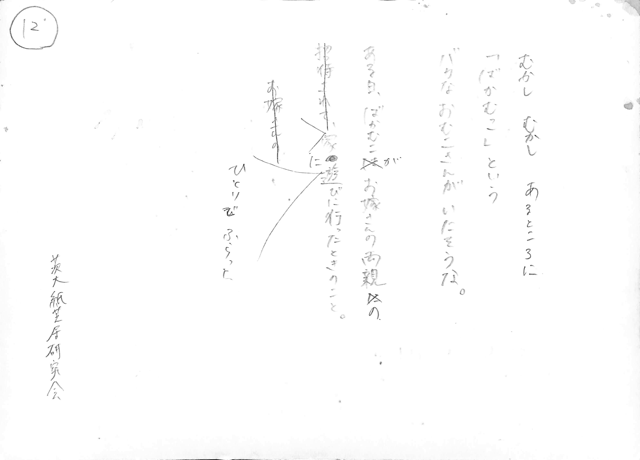 むかし むかし あるところに
「ばかむこ」という
バカなおむこさんがいたそうな。
ある日、ばかむこが お嫁さんの両親の
招待されて、家に遊びに行ったときのこと。
お嫁さんの
ひとりで ふらっと
茨大紙芝居研究会
12